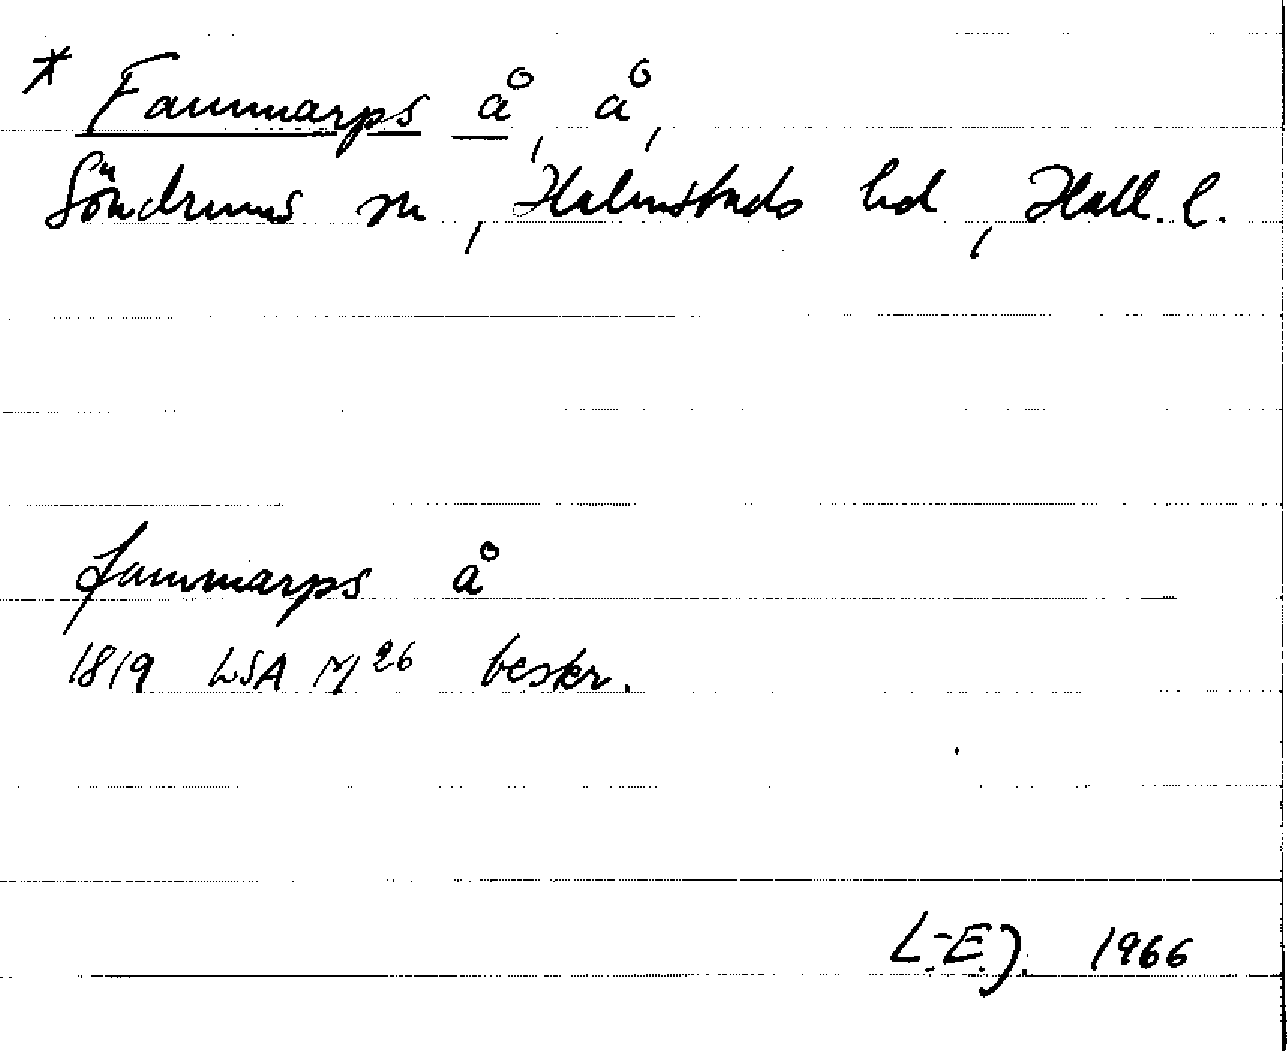 * Fammarps å, å,
Söndrums sn, Halmstads hd, Hall. l.
fammarps å
1819 LSA M 26 beskr.
L.-E.J. 1966